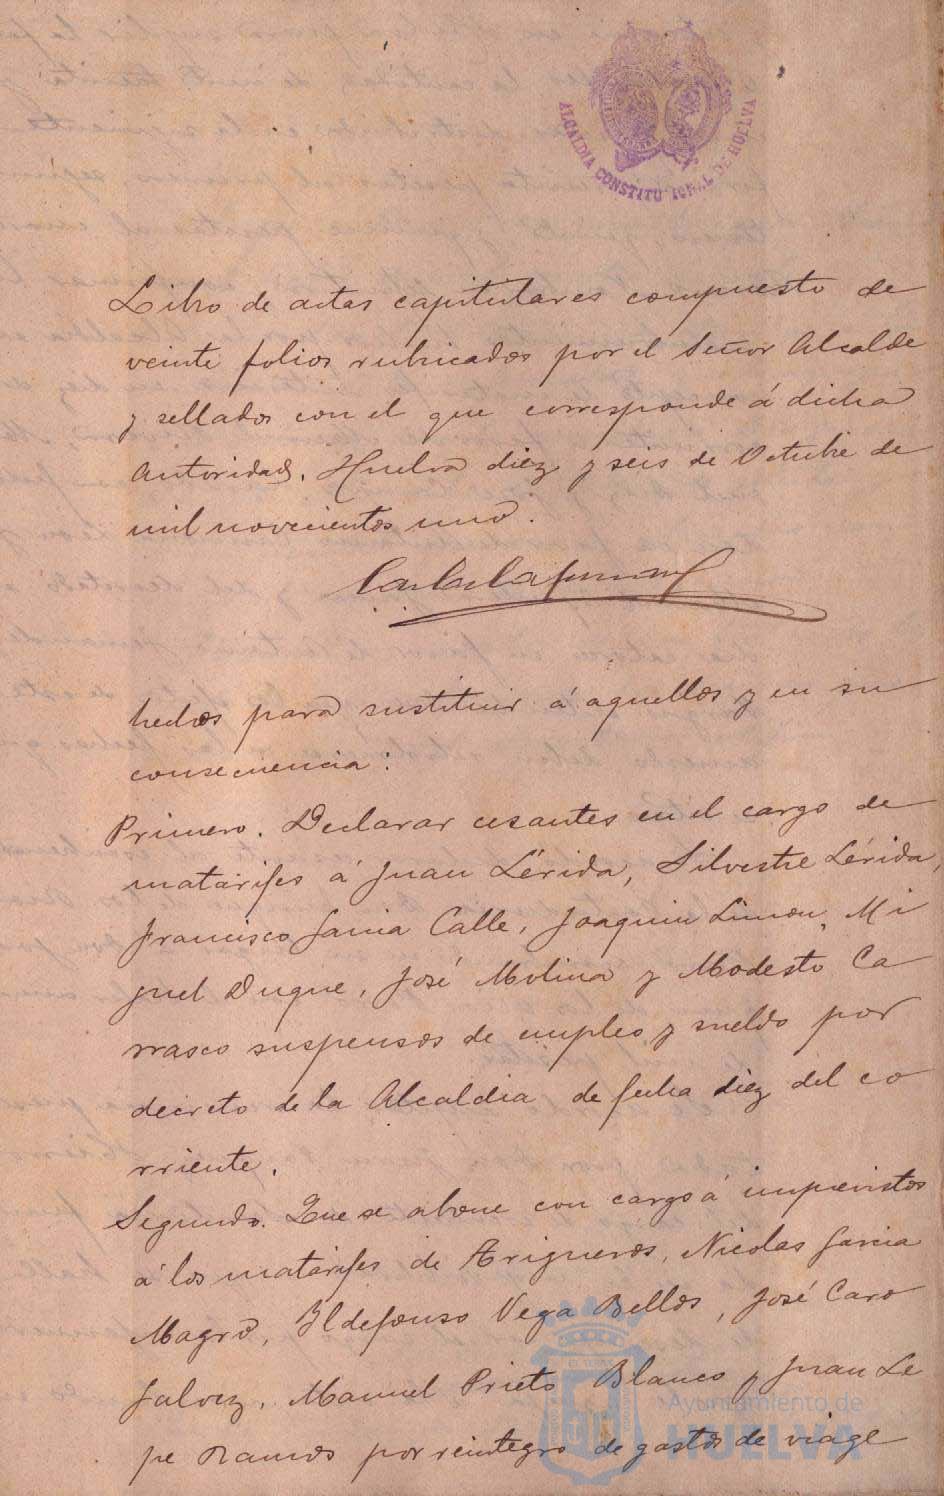 ALCALDIA CONSTITUCIONAL DE HUELVA
Libro de actas capitulares compuesto de
veinte folios rubricados por el Señor Alcalde
y sellados con el que corresponde á dicha
Autoridad. Huelva diez y seis de Octubre de
mil novecientos uno.
hechos para sustituir á aquellos y en su
consecuencia:
Primero. Declarar cesantes en el cargo de
matarifes á Juan Lérida, Silvestre Lérida,
Francisco Garcia Calle, Joaquin Limon, Mi
guel Duque, José Molina y Modesto Ca
rrasco suspensos de empleo y sueldo por
decreto de la Alcaldia de fecha diez del co
rriente.
Segundo. Que se abone con cargo á imprevistos
á los matarifes de Trigueros, Nicolas Garcia
Magro, Ildefonso Vega Bellos, José Caro
Galvez, Manuel Prieto Blanco y Juan Le
pe Ramos por reintegro de gastos de viage
Ayuntamiento de
HUELVA